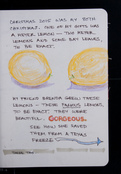 CHRISTMAS 2015 WAS MY 50TH
CHRISTMAS. ONE OF MY GIFTS WAS
A MEYER LEMON – TWO MEYER
LEMONS AND SOME BAY LEAVES,
TO BE EXACT.
MY FRIEND BRENDA GREW THESE
LEMONS – THESE FAMOUS LEMONS,
TO BE EXACT. THEY WERE
BEAUTIFUL. GORGEOUS.
SEE HOW SHE SAVED
THEM FROM A TEXAS
FREEZE